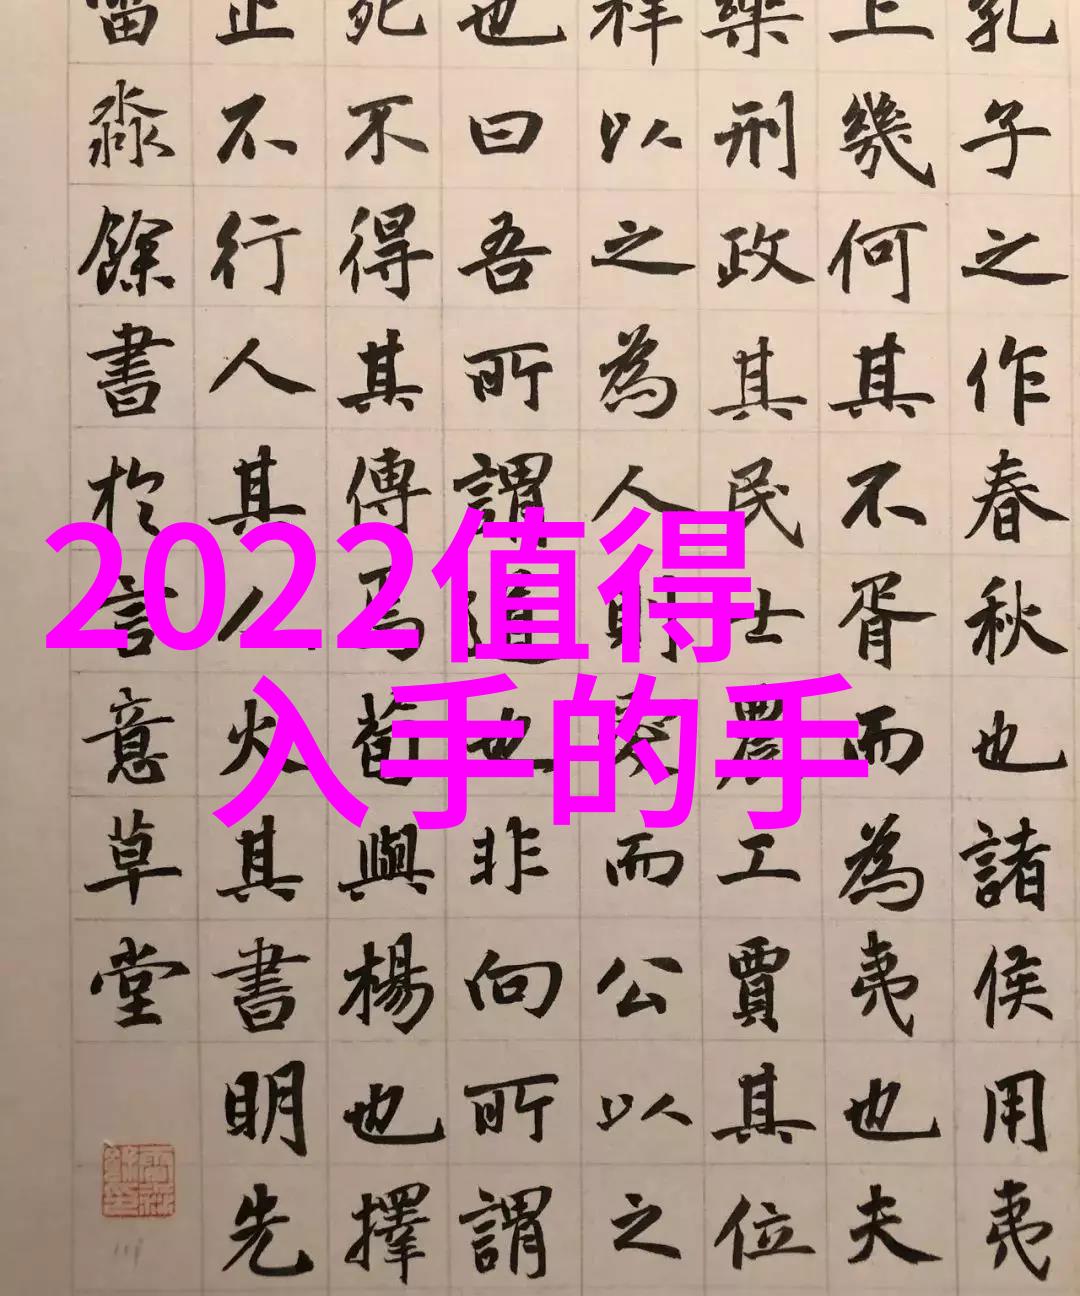 孔子之作春秋也諸侯用夷
上幾何其不胥而為夷也夫
樂刑政其民士農工賈其位
祥以之為人則愛而公以之
也曰吾所謂道也非向所謂
死不得其傳焉荀與楊也擇
止不行人其人火其書明先
淼餘書於言意草堂
2022值得
入手的手